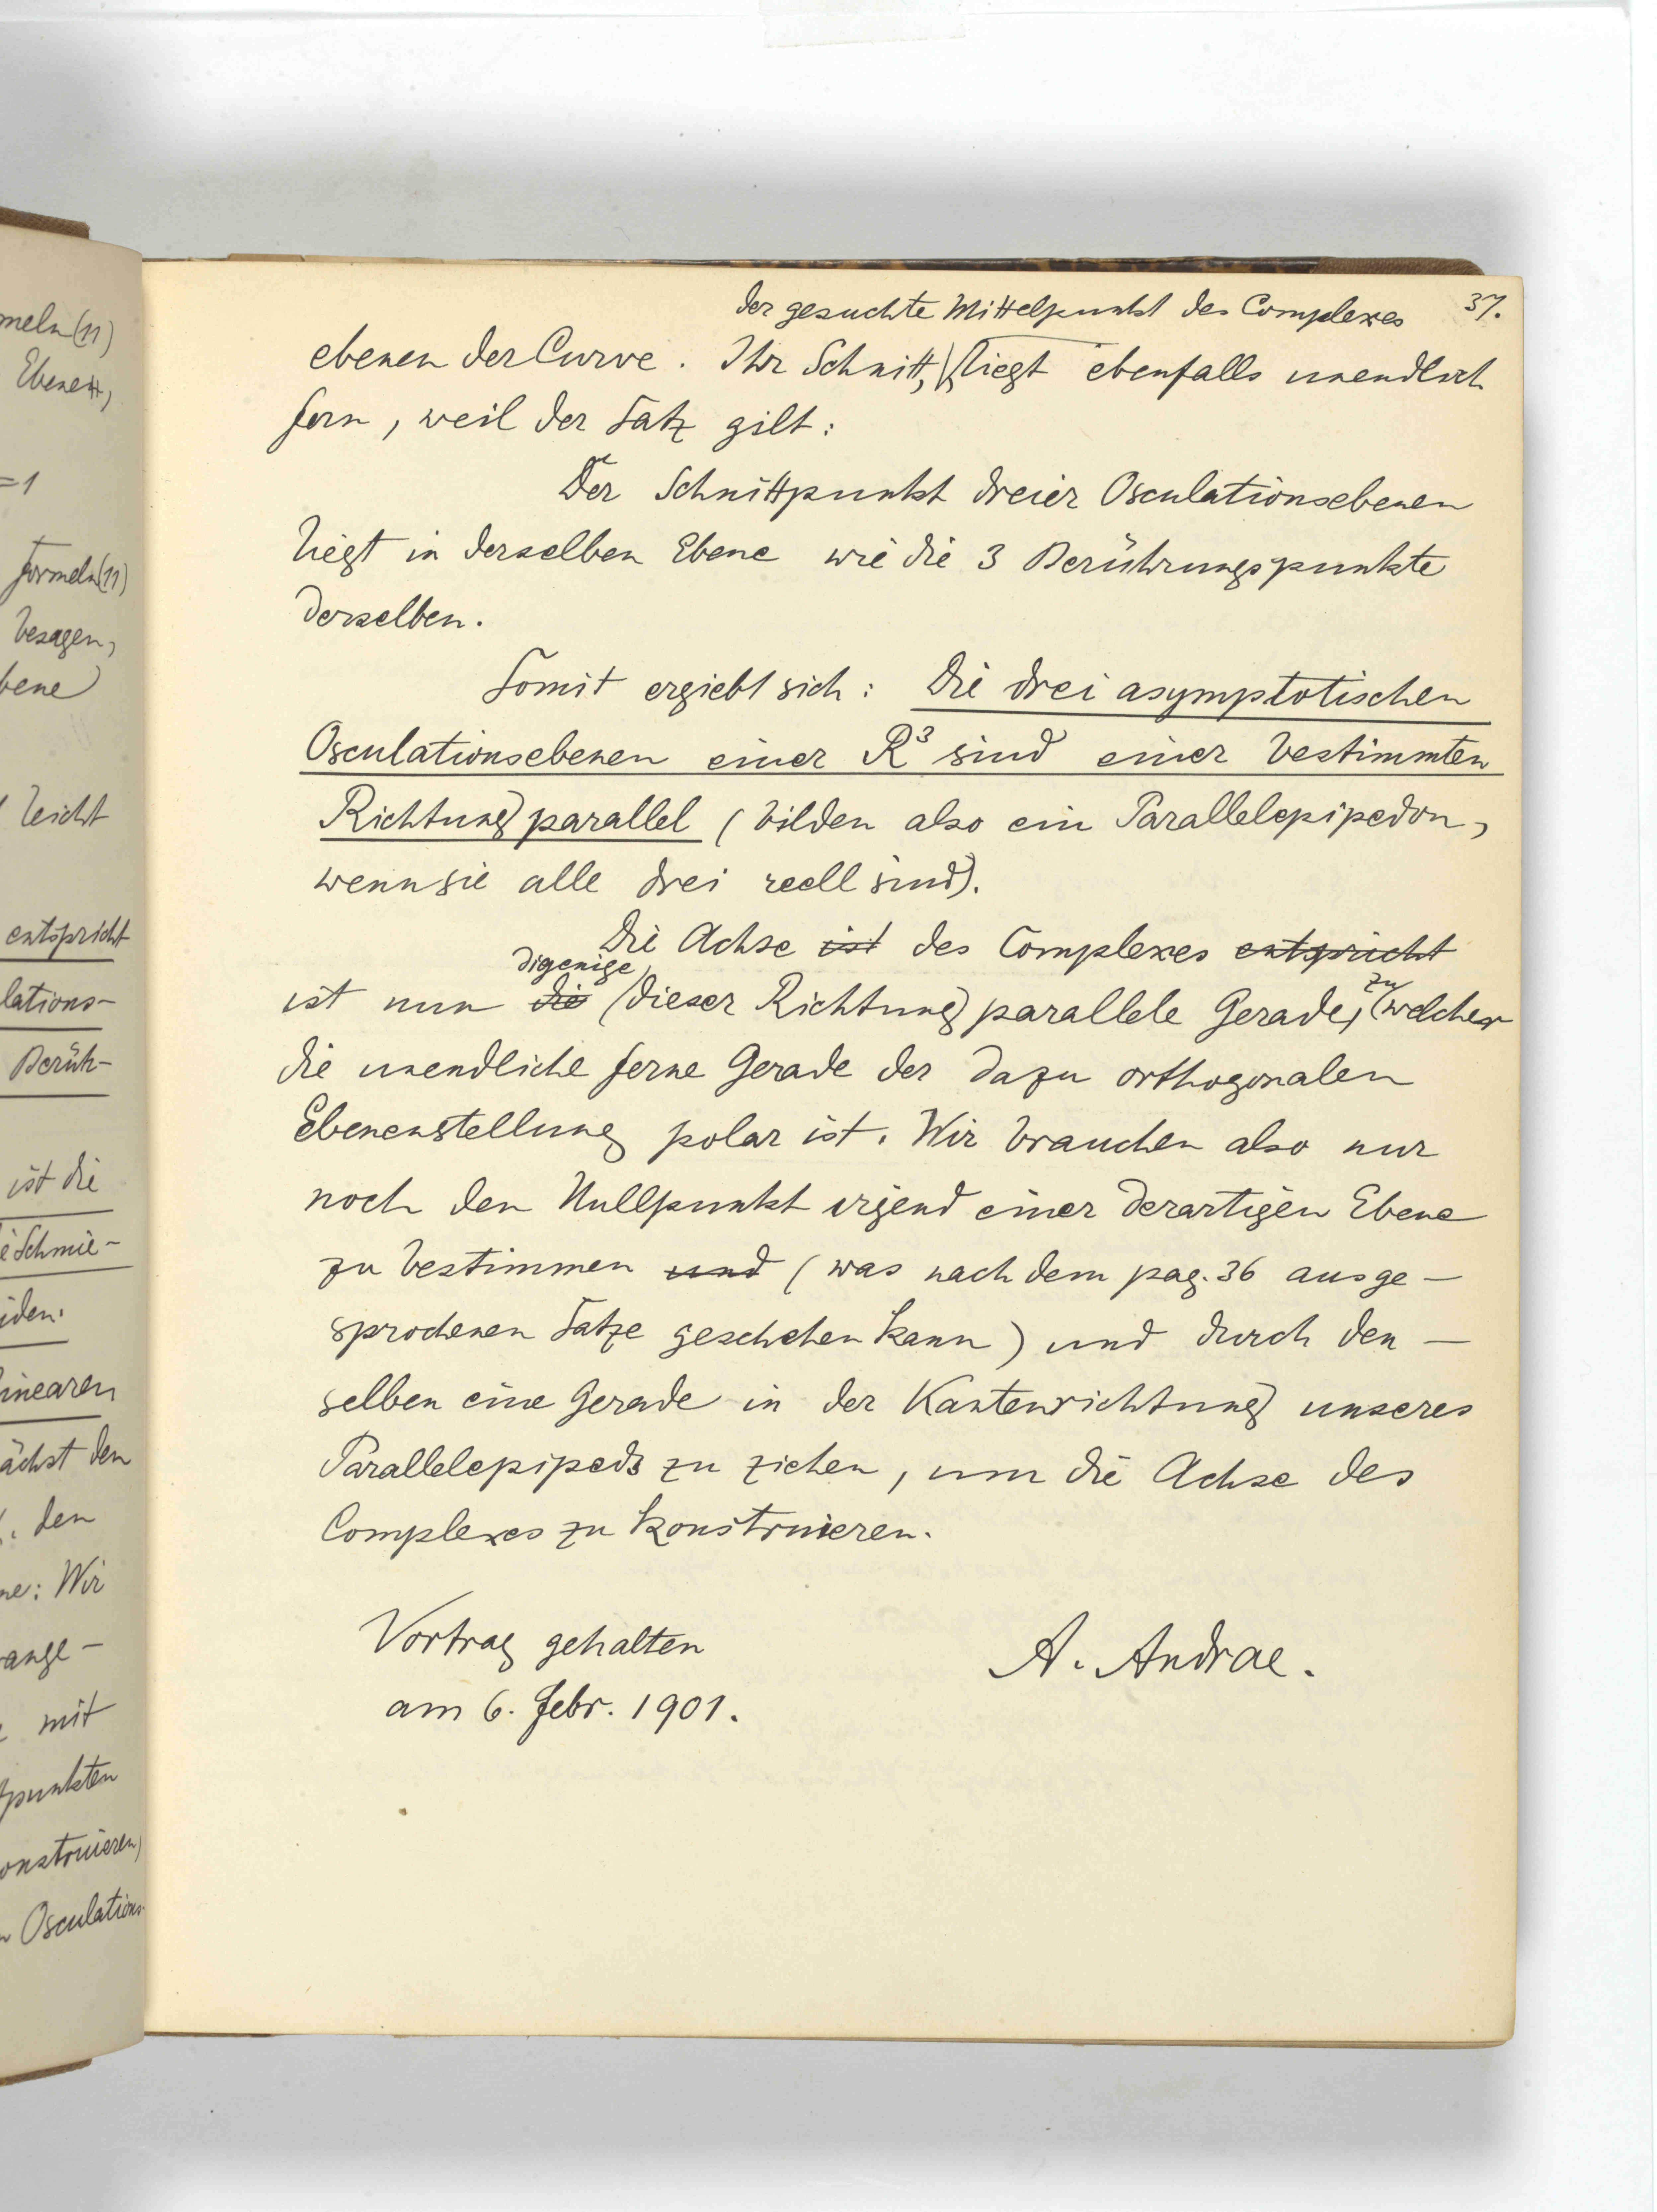 meln (11)
Ebenen,
=1
Formeln (11)
besagen,
bene
leicht
entspricht
lations-
Berüh-
ist die
Schmie-
iden.
linearen
ächst den
den
ne: Wir
ange-
mit
punkten
onstruieren,
Osculations-
37.
der gesuchte Mittelpunkt des Complexes
ebenen der Curve. Ihr Schnitt, liegt ebenfalls unendlich
fern, weil der Satz gilt:
Der Schnittpunkt dreier Osculationsebenen
liegt in derselben Ebene wie die 3 Berührungspunkte
derselben.
Somit ergiebt sich: Die drei asymptotischen
Osculationsebenen einer R³ sind einer bestimmten
Richtung parallel (bilden also ein Parallelepipedon,
wenn sie alle drei reell sind).
Die Achse ist des Complexes entspricht
digenige
ist nun die dieser Richtung parallele Gerade, zu welcher
die unendliche ferne Gerade der dazu orthogonalen
Ebenenstellung polar ist. Wir brauchen also nur
noch den Nullpunkt irgend einer derartigen Ebene
zu bestimmen und (was nach dem pag. 36 ausge-
sprochenen Satze geschehen kann) und durch den-
selben eine Gerade in der Kantenrichtung unseres
Parallelepipeds zu ziehen, um die Achse des
Complexes zu konstruieren.
Vortrag gehalten
am 6. Febr. 1901.
A. Andrae.